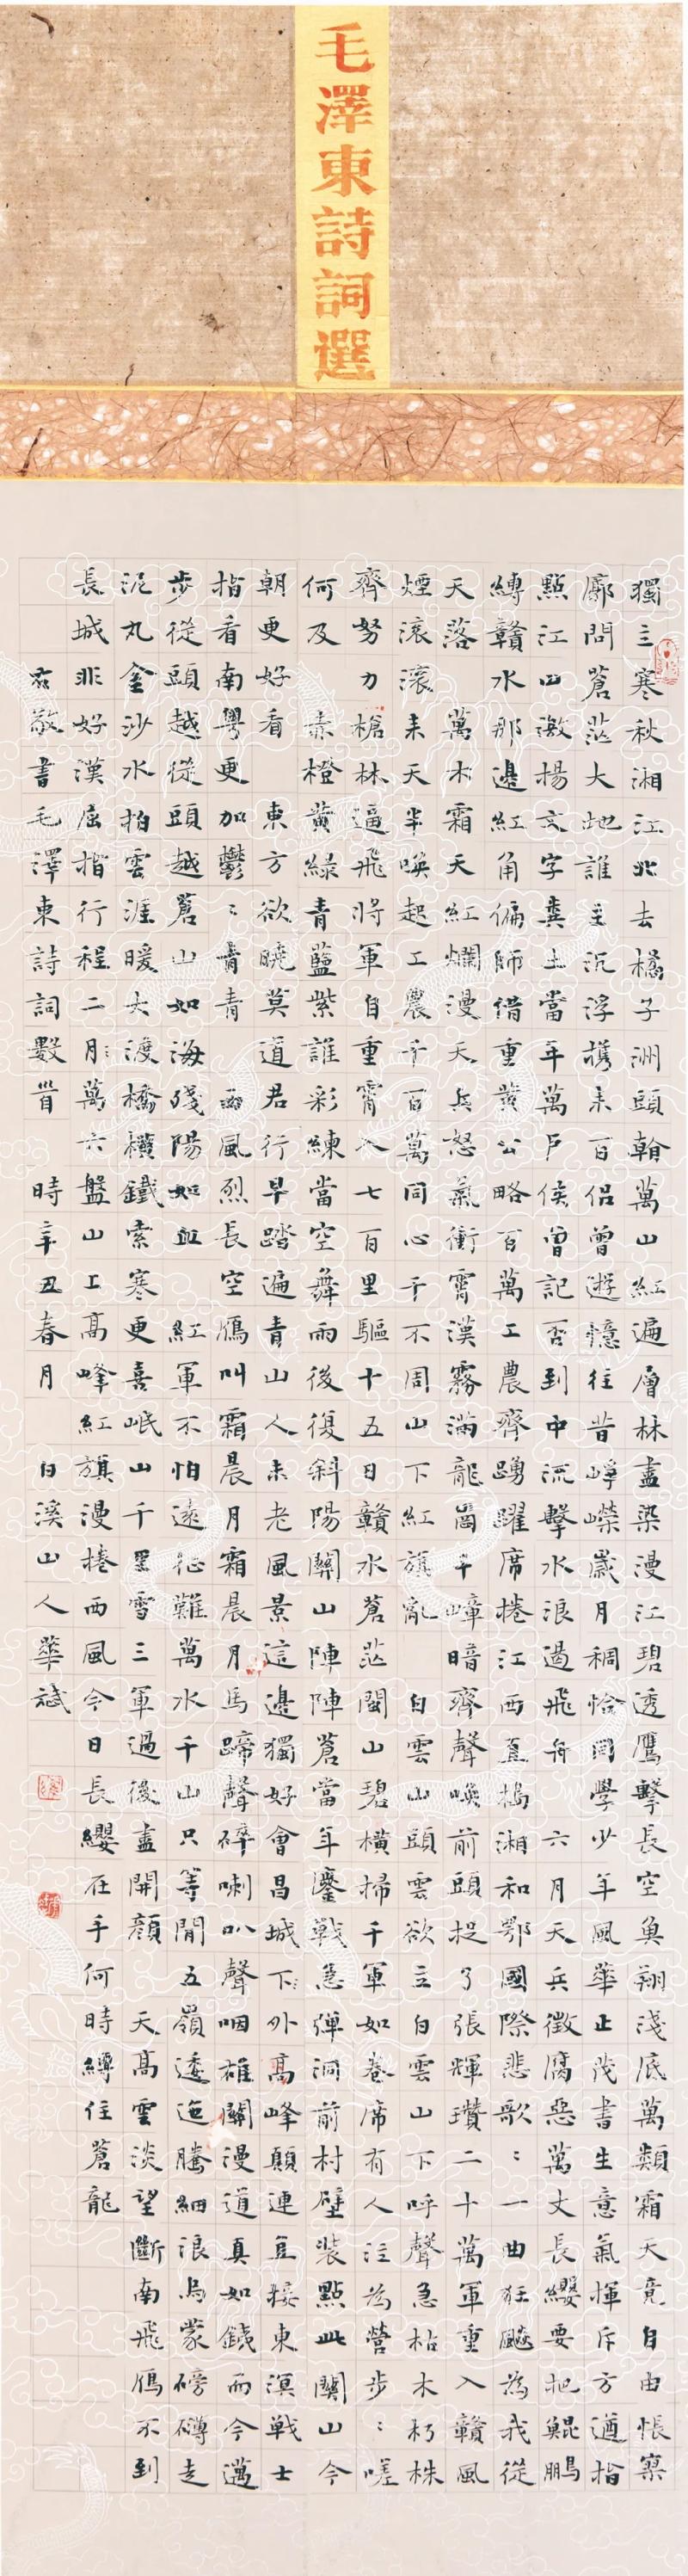 毛澤東詩詞選
獨立寒秋湘江北去橘子洲頭翰萬山紅遍層林盡染漫江碧透鷹擊長空魚翔淺底萬類霜天竟自由悵寥
廓問蒼茫大地誰主沉浮携來百侶曾遊憶往昔崢嶸歲月稠恰同學少年風華正茂書生意氣揮斥方遒指
點江山激揚文字糞土當年萬戶侯曾記否到中流擊水浪遏飛舟 六月天兵徵腐惡萬丈長纓要把鯤鵬
縛贛水那邊紅角偏師借重黃公略百萬工農齊踴躍席捲江西直搗湘和鄂國際悲歌:一曲狂飈為我從
天落 萬木霜天紅爛漫天兵怒氣衝霄漢霧滿龍岡千嶂暗齊聲喚前頭捉了張輝瓚二十萬軍重入贛風
煙滾滾來天半喚起工農千百萬同心干不周山下紅旗亂 白雲山頭雲欲立白雲山下呼聲急枯木朽株
齊努力槍林逼飛將軍自重霄入七百里驅十五日贛水蒼茫閩山碧橫掃千軍如卷席有人泣為營步:嗟
何及 赤橙黃綠青藍紫誰彩練當空舞雨後復斜陽關山陣陣蒼當年鏖戰急彈洞前村壁裝點此關山今
朝更好看 東方欲曉莫道君行早踏遍青山人未老風景這邊獨好會昌城下外高峰顛連直接東溟戰士
指看南粵更加鬱:青青 西風烈長空雁叫霜晨月霜晨月馬蹄聲碎喇叭聲咽雄關漫道真如鐵而今邁
步從頭越從頭越蒼山如海殘陽如血 紅軍不怕遠征難萬水千山只等閒五嶺逶迤騰細浪烏蒙磅礴走
泥丸金沙水拍雲涯暖大渡橋橫鐵索寒更喜岷山千里雪三軍過後盡開顏 天高雲淡望斷南飛雁不到
長城非好漢屈指行程二月:萬六盤山上高峰紅旗漫捲西風今日長纓在手何時縛住蒼龍
右敬書毛澤東詩詞數首 時辛丑春月 白溪山人華斌